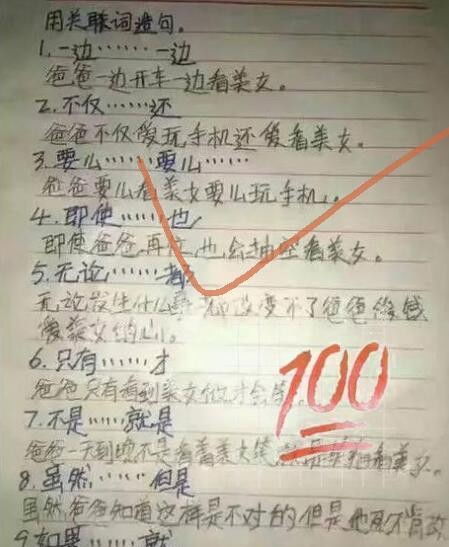 用关联词造句。
1.一边……一边
爸爸一边开车一边看美女。
2.不仅……还
爸爸不仅爱玩手机还爱看美女。
3.要么……要么……
爸爸要么看美女要么玩手机。
4.即使……也
即使爸爸再忙,也会抽空看美女。
5.无论……都
无论发生什么事都改变不了爸爸
爱美女的心。
6.只有……才
爸爸只有看到美女他才会笑
100
7.不是……就是
爸爸一天到晚不是看着美女笑,就是
看美女。
8.虽然……但是
虽然爸爸知道这样是不对的但是他死不肯改
9.如果……就